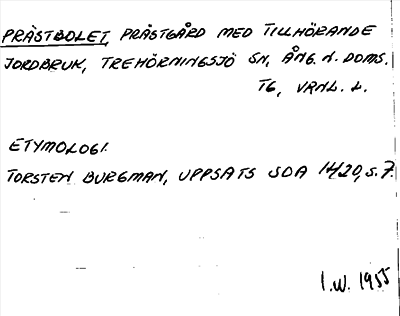 PRÄSTBOLET, PRÄSTGÅRD MED TILLHÖRANDE
JORDBRUK, TREHÖRNINGSJÖ SN, ÅNG. N. DOMS.
TG, VRNL. L.
ETYMOLOGI.
TORSTEN BURGMAN, UPPSATS SDA 1420, S. 7.
I.W. 1955